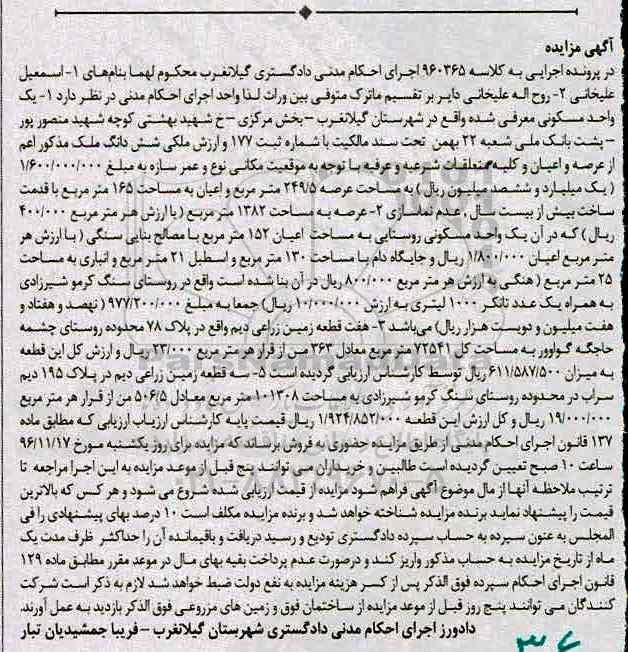 آگهی مزایده
در پرونده اجرایی به کلاسه ۹۶۰۳۶۵ اجرای احکام مدنی دادگستری گیلانغرب محکوم لهما بنام‌های ۱- اسمعیل
علیخانی ۲- روح اله علیخانی دایر بر تقسیم ماترک متوفی بین وراث لذا واحد اجرای احکام مدنی در نظر دارد ۱- یک
واحد مسکونی معرفی شده واقع در شهرستان گیلانغرب – بخش مرکزی – خ شهید بهشتی کوچه شهید منصور پور
– پشت بانک ملی شعبه ۲۲ بهمن تحت سند مالکیت با شماره ثبت ۱۷۷ و ارزش ملکی شش دانگ ملک مذکور اعم
از عرصه و اعیان و کلیه متعلقات شرعیه و عرفیه با توجه به موقعیت مکانی نوع و عمر سازه به مبلغ ۱/۶۰۰/۰۰۰/۰۰۰
( یک میلیارد و ششصد میلیون ریال ) به مساحت عرصه ۲۴۹/۵ متر مربع و اعیان به مساحت ۱۶۵ متر مربع با قدمت
ساخت بیش از بیست سال ، عدم نماسازی ۲- عرصه به مساحت ۱۳۸۲ متر مربع ( با ارزش هر متر مربع ۴۰۰/۰۰۰
ریال ) که در آن یک واحد مسکونی روستایی به مساحت اعیان ۱۵۲ متر مربع با مصالح بنایی سنگی ( با ارزش هر
متر مربع اعیان ۱/۸۰۰/۰۰۰ ریال و جایگاه دام با مساحت ۱۳۰ متر مربع و اسطبل ۲۱ متر مربع و انباری به مساحت
۲۵ متر مربع ( هنگی به ارزش هر متر مربع ۸۰۰/۰۰۰ ریال در آن بنا شده است واقع در روستای سنگ کرمو شیرزادی
به همراه یک عدد تانکر ۱۰۰۰ لیتری به ارزش ۱۰/۰۰۰/۰۰۰ ریال) جمعا به مبلغ ۹۷۷/۲۰۰/۰۰۰ ( نهصد و هفتاد و
هفت میلیون و دویست هزار ریال) می‌باشد ۳- هفت قطعه زمین زراعی دیم واقع در پلاک ۷۸ محدوده روستای چشمه
حاجگه گواوور به مساحت کل ۷۲۵۴۱ متر مربع معادل ۳۶۳ من از قرار هر متر مربع ۲۳/۰۰۰ ریال و ارزش کل این قطعه
به میزان ۶۱۱/۵۸۷/۵۰۰ ریال توسط کارشناس ارزیابی گردیده است ۵- سه قطعه زمین زراعی دیم در پلاک ۱۹۵ دیم
سراب در محدوده روستای سنگ کرمو شیرزادی به مساحت ۱۰۱۳۰۸ متر مربع معادل ۵۰۶/۵ من از قرار هر متر مربع
۱۹/۰۰۰/۰۰۰ ریال و کل ارزش این قطعه ۱/۹۲۴/۸۵۲/۰۰۰ ریال قیمت پایه کارشناس ارزیاب ارزیابی که مطابق ماده
۱۳۷ قانون اجرای احکام مدنی از طریق مزایده حضوری به فروش برساند که مزایده برای روز یکشنبه مورخ ۹۶/۱۱/۱۷
ساعت ۱۰ صبح تعیین گردیده است طالبین و خریداران می توانند پنج قبل از موعد مزایده به این اجرا مراجعه تا
ترتیب ملاحظه آنها از مال موضوع آگهی فراهم شود مزایده از قیمت ارزیابی شده شروع می شود و هر کس که بالاترین
قیمت را پیشنهاد نماید برنده مزایده شناخته خواهد شد و برنده مزایده مکلف است ۱۰ درصد بهای پیشنهادی را فی
المجلس به عنون سپرده به حساب سپرده دادگستری تودیع و رسید دریافت و باقیمانده آن را حداکثر ظرف مدت یک
ماه از تاریخ مزایده به حساب مذکور واریز کند و درصورت عدم پرداخت بقیه بهای مال در موعد مقرر مطابق ماده ۱۲۹
قانون اجرای احکام سپرده فوق الذکر پس از کسر هزینه مزایده به نفع دولت ضبط خواهد شد لازم به ذکر است شرکت
کنندگان می توانند پنج روز قبل از موعد مزایده از ساختمان فوق و زمین های مزروعی فوق الذکر بازدید به عمل آورند.
دادورز اجرای احکام مدنی دادگستری شهرستان گیلانغرب – فریبا جمشیدیان تبار